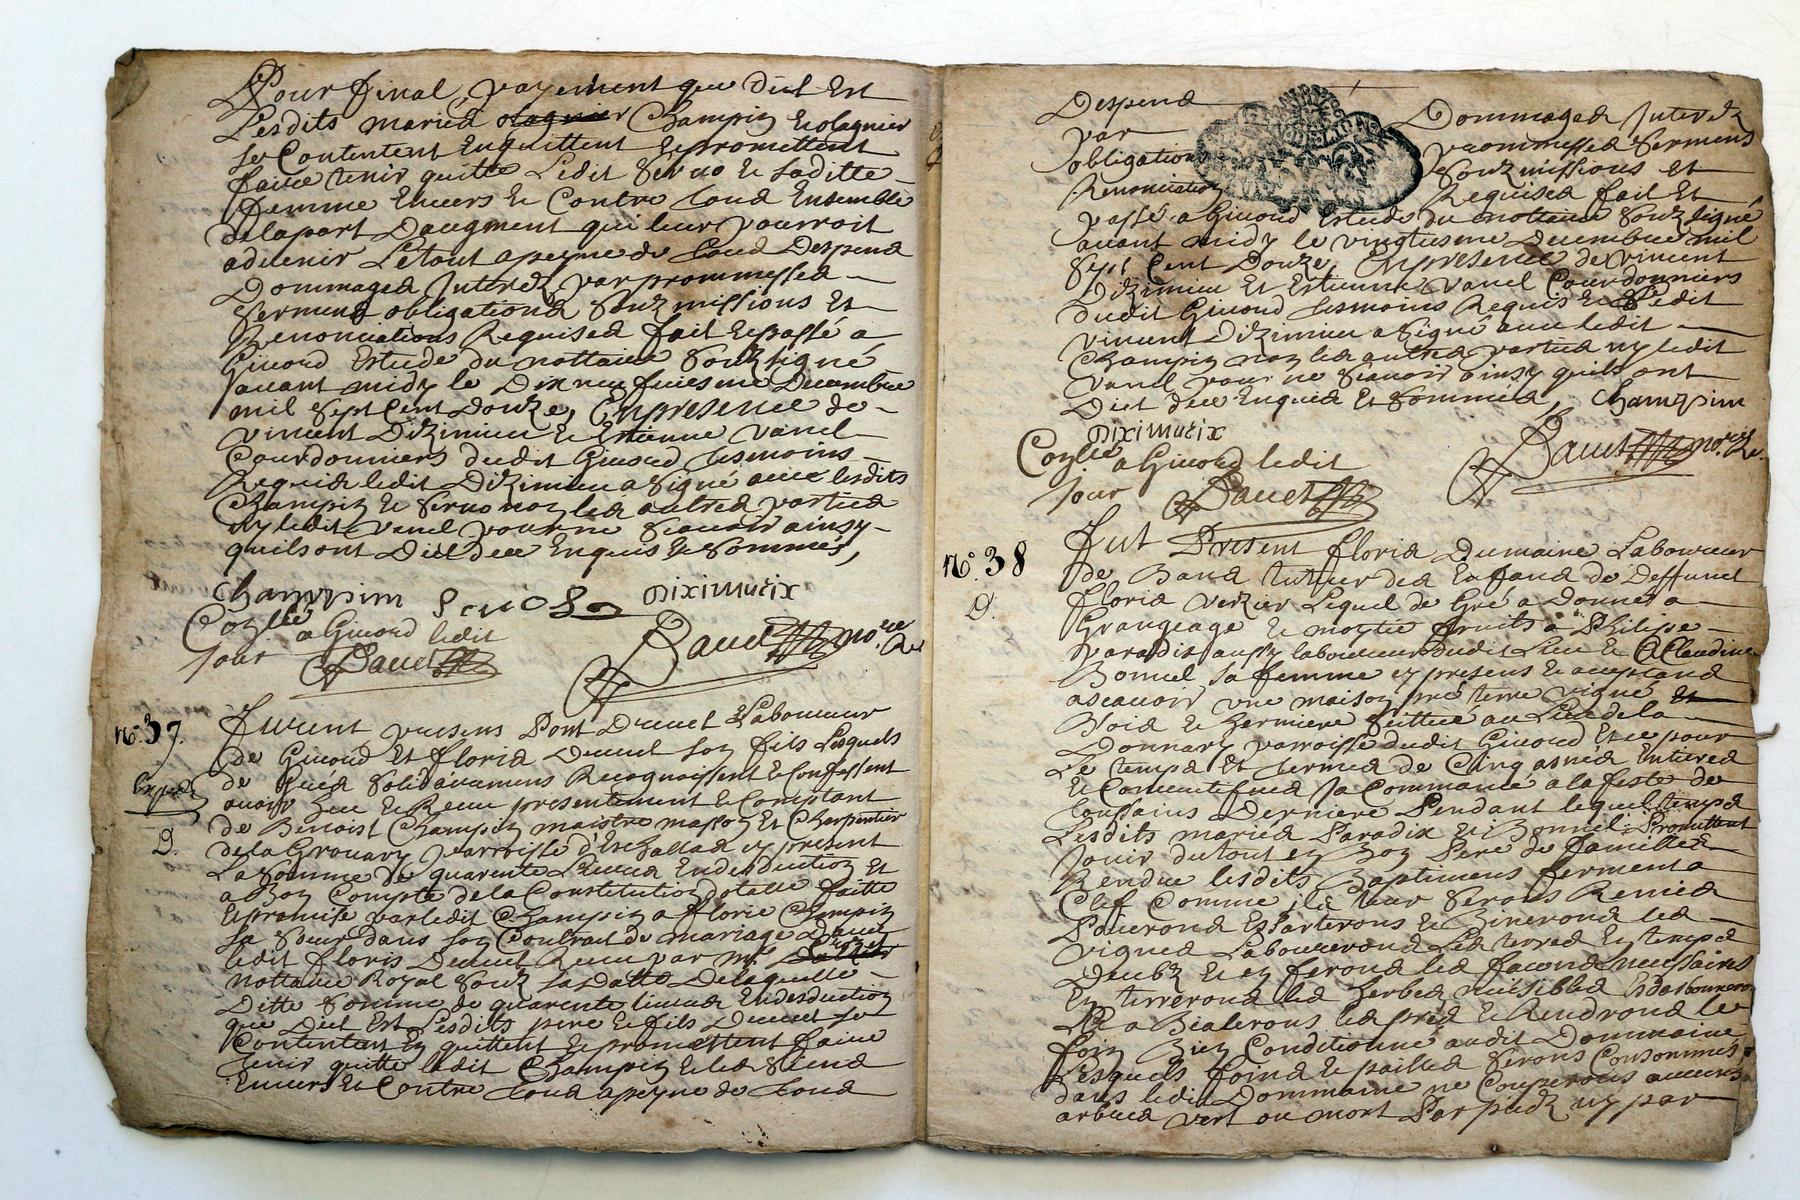 Pour final payement que dict Est
Lesdits mariéd olagnier Champin Et olagnier
se Contentent Enquittent Et promettent
faire tenir quitte Ledit Et saditte
femme Enuers Et Contre toud Ensemble
delapart Daugment qui leur pourroit
aduenir Letout apeyne de toud Despend
Dommaged Interetz par prommessed
sermend obligationd souzmissions Et
Renonciations Requised fait Et passé a
Giuord Estude du nottaire souzsigné
auant midy le Dix neufuiesme Decembre
mil sept Cent Douze, Enpresence de
vincent Dizimieu Et Estienne vanel
Courdonniers dudit Giuord tesmoins
Requis ledit Dizimieu a signé auec lesdits
Champin Et non léd autred partied
ny ledit vanel pour ne scauoir ainsy
quilsont Dict de ce Enquis Et sommés,
champpim DixiMieix
Collé a Giuord ledit
jour Dauet
Dauet no.re R.
n.o 37.
Furent presens Pont Decuet Laboureur
de Giuord Et florid Decuet son fils Lesquels
de gréd solidairement Recognoissent Et Confessent
auoir heu Et Receu presentement Et Comptant
D.
de Benoist Champin maistre masson Et Charpentier
dela Grouary parroisse d'Eschallad cy present
La somme de quarente Liured Endeduction Et
a Bon Compte dela Constitution dotalle faitte
Et promise par ledit Champin a florie Champin
sa soeur dans son Contrait de mariage
ledit floris Decuet Receu par m.e
nottaire Royal souz sa Datte Delaquelle
Ditte somme de quarente liured Endeduction
que Dict Est Lesdits pere Et fils Decuet se
Contentent En quittent Et promettent faire
tenir quitte ledit Champin Et léd siend
Enuers Et Contre toud apeyne de toud
Despend Dommaged Interetz
par prommessed sermens
obligations souzmissions Et
Renonciations Requised fait Et
passé a Giuord Estude du nottaire souzsigné
auant midy le vingtiesme Decembre mil
sept Cent Douze, Enpresence de vincent
Dizimieu Et Estienne vanel Courdonniers
dudit Giuord tesmoins Requis Et Ledit
vincent Dizimieu a signé auec ledit
Champin non léd autred partied ny ledit
vanel pour ne scauoir ainsy quils ont
Dict de ce Enquis Et sommés, champpim
DixiMieix
Collé a Giuord ledit
jour Dauet
Dauet no.re R.
n.o 38
Fut Present florid Dumaine Laboureur
de Band tuteur déd Enfand de Deffunct
D.
florid verzier Lequel de Gré a Donné a
Grangeage Et moytié fruits a Philipe
paradis aussy laboureur dudit Lieu Et Claudine
Bonnel sa femme cy presens Et acceptand
ascauoir vne maison pré terre vigne Et
Boid Et hermiere scittué au Lieu dela
Donnary parroisse dudit Giuord Et ce pour
Le tempd Et termed de Cinq annéd Entiered
Et Consecutiued Ja Commancé alafeste de
toussains Derniere Pendant lequel tempd
Lesdits maried Paradix Et Bonnel Promettent
Jouir dutout en Bon Pere de famille
Rendre lesdits Bastimens ferment a
Clef Comme ilz leur serons Remid
Pouerond Esparterons Et Binerond léd
vigned Labourerond Léd terred En tempd
Deubz Et en ferond léd facond necessaires
En terrerond léd herbed nuisibled
Et a Bialerons léd pred Et Rendrond le
foin Bien Conditionné audit Dommaine
Lesquels foind Et pailled serons Consommés
dans ledit Dommaine ne Couperons aucuns
arbred vert ou mort Par pied ny par